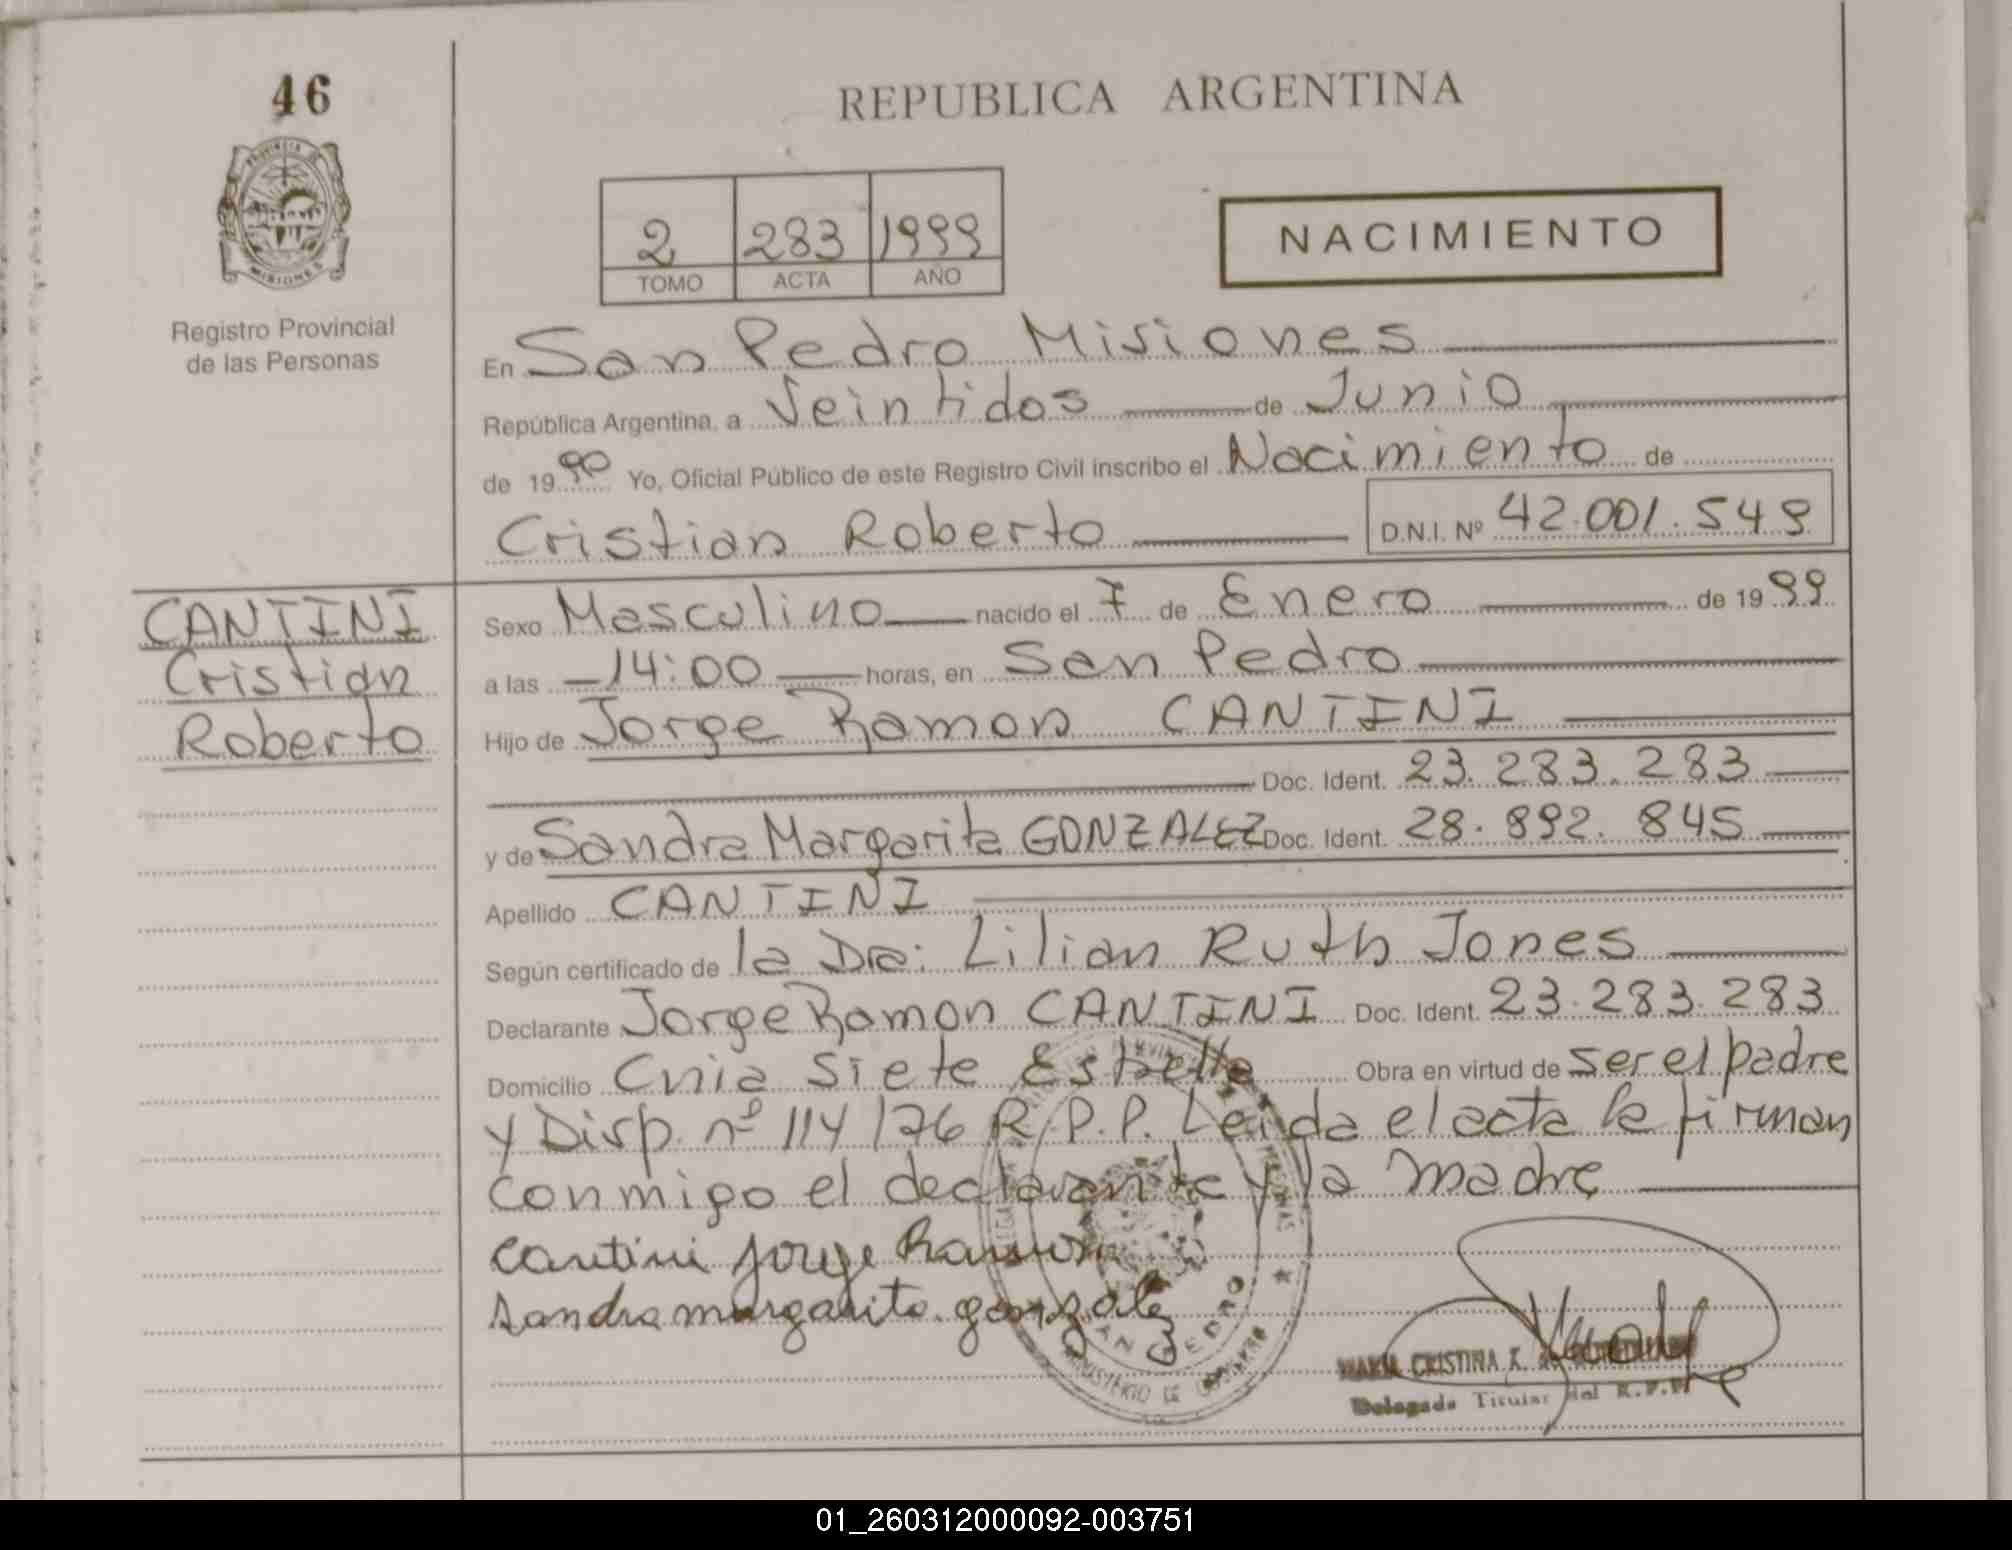 46
REPUBLICA ARGENTINA
PROVINCIA DE
MISIONES
Registro Provincial
de las Personas
2 283 1999
TOMO ACTA AÑO
NACIMIENTO
En San Pedro Misiones
República Argentina, a Veintidos de Junio
de 1999 Yo, Oficial Público de este Registro Civil inscribo el Nacimiento de
Cristian Roberto D.N.I. Nº 42.001.549
CANTINI
Cristian
Roberto
Sexo Masculino nacido el 7 de Enero de 1999
a las 14:00 horas, en San Pedro
Hijo de Jorge Ramon CANTINI
Doc. Ident. 23.283.283
y de Sandra Margarita GONZALEZ Doc. Ident. 28.892.845
Apellido CANTINI
Según certificado de la Dra: Lilian Ruth Jones
Declarante Jorge Ramon CANTINI Doc. Ident. 23.283.283
Domicilio Cnia Siete Estrella Obra en virtud de ser el padre
y Disp. nº 114/76 R.P.P. Leida el acta la firman
conmigo el declarante y la madre
Cantini Jorge Ramon
Sandra margarita gonzalez
SAN PEDRO
MINISTERIO DE GOBIERNO
MARIA CRISTINA K. DE
Delegada Titular del R.P.P.
01_260312000092-003751